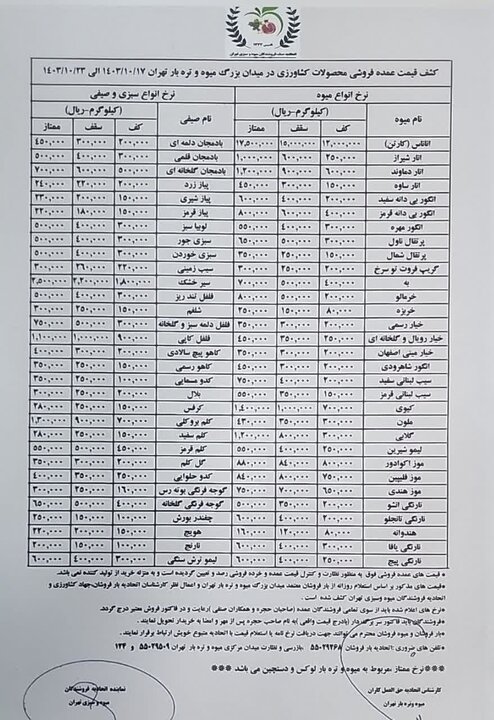 کشف قیمت عمده فروشی محصولات کشاورزی در میدان بزرگ میوه و تره بار تهران ۱۴۰۳/۱۰/۱۷ الی ۱۴۰۳/۱۰/۲۳
نرخ انواع میوه
(کیلوگرم-ریال)
نرخ انواع سبزی و صیفی
(کیلوگرم-ریال)
نام میوه کف سقف ممتاز نام صیفی کف سقف ممتاز
آناناس (کارتن) ۱۲,۰۰۰,۰۰۰ ۱۵,۰۰۰,۰۰۰ ۱۷,۵۰۰,۰۰۰ بادمجان دلمه ای ۲۰۰,۰۰۰ ۳۰۰,۰۰۰ ۴۵۰,۰۰۰
انار شیراز ۲۵۰,۰۰۰ ۶۰۰,۰۰۰ ۱,۰۰۰,۰۰۰ بادمجان قلمی ۳۰۰,۰۰۰ ۴۰۰,۰۰۰ ۵۰۰,۰۰۰
انار دماوند ۶۰۰,۰۰۰ ۹۰۰,۰۰۰ ۱,۲۰۰,۰۰۰ بادمجان گلخانه ای ۵۰۰,۰۰۰ ۶۰۰,۰۰۰ ۷۰۰,۰۰۰
انار ساوه ۱۵۰,۰۰۰ ۳۰۰,۰۰۰ ۴۵۰,۰۰۰ پیاز زرد ۲۰۰,۰۰۰ ۲۲۰,۰۰۰ ۲۴۰,۰۰۰
انگور بی دانه سفید ۲۰۰,۰۰۰ ۴۰۰,۰۰۰ ۶۰۰,۰۰۰ پیاز شیری ۱۵۰,۰۰۰ ۲۰۰,۰۰۰ ۲۳۰,۰۰۰
انگور بی دانه قرمز ۴۰۰,۰۰۰ ۶۰۰,۰۰۰ ۸۰۰,۰۰۰ پیاز قرمز ۱۵۰,۰۰۰ ۱۸۰,۰۰۰ ۲۲۰,۰۰۰
انگور مهره ۳۰۰,۰۰۰ ۴۰۰,۰۰۰ ۵۵۰,۰۰۰ لوبیا سبز ۳۰۰,۰۰۰ ۴۰۰,۰۰۰ ۵۰۰,۰۰۰
پرتقال ناول ۳۰۰,۰۰۰ ۵۰۰,۰۰۰ ۶۵۰,۰۰۰ سبزی جور ۳۰۰,۰۰۰ ۴۰۰,۰۰۰ ۵۰۰,۰۰۰
پرتقال شمال ۱۵۰,۰۰۰ ۲۵۰,۰۰۰ ۳۵۰,۰۰۰ سبزی خوردن ۳۰۰,۰۰۰ ۴۰۰,۰۰۰ ۵۰۰,۰۰۰
گریپ فروت تو سرخ ۲۰۰,۰۰۰ ۲۵۰,۰۰۰ ۳۰۰,۰۰۰ سیب زمینی ۲۲۰,۰۰۰ ۲۶۰,۰۰۰ ۳۰۰,۰۰۰
به ۴۰۰,۰۰۰ ۵۰۰,۰۰۰ ۷۰۰,۰۰۰ سیر خشک ۱,۸۰۰,۰۰۰ ۲,۲۰۰,۰۰۰ ۲,۵۰۰,۰۰۰
خرمالو ۲۰۰,۰۰۰ ۵۰۰,۰۰۰ ۸۰۰,۰۰۰ فلفل تند ریز ۲۰۰,۰۰۰ ۴۰۰,۰۰۰ ۵۰۰,۰۰۰
خربزه ۸۰,۰۰۰ ۱۵۰,۰۰۰ ۲۵۰,۰۰۰ شلغم ۱۵۰,۰۰۰ ۲۵۰,۰۰۰ ۳۰۰,۰۰۰
خیار رسمی ۲۵۰,۰۰۰ ۳۰۰,۰۰۰ ۳۵۰,۰۰۰ فلفل دلمه سبز و گلخانه ۳۰۰,۰۰۰ ۵۰۰,۰۰۰ ۷۵۰,۰۰۰
خیار رویال و گلخانه ای ۲۵۰,۰۰۰ ۳۵۰,۰۰۰ ۴۵۰,۰۰۰ فلفل کاپی ۹۰۰,۰۰۰ ۱,۰۰۰,۰۰۰ ۱,۱۰۰,۰۰۰
خیار مینی اصفهان ۲۰۰,۰۰۰ ۳۰۰,۰۰۰ ۳۵۰,۰۰۰ کاهو پیچ سالادی ۲۰۰,۰۰۰ ۳۰۰,۰۰۰ ۴۰۰,۰۰۰
انگور شاهرودی ۲۰۰,۰۰۰ ۳۰۰,۰۰۰ ۴۰۰,۰۰۰ کاهو رسمی ۱۵۰,۰۰۰ ۲۵۰,۰۰۰ ۳۵۰,۰۰۰
سیب لبنانی سفید ۲۰۰,۰۰۰ ۴۰۰,۰۰۰ ۷۵۰,۰۰۰ کدو مسمایی ۱۰۰,۰۰۰ ۲۵۰,۰۰۰ ۳۵۰,۰۰۰
سیب لبنانی قرمز ۱۵۰,۰۰۰ ۳۵۰,۰۰۰ ۵۵۰,۰۰۰ بلال ۲۰۰,۰۰۰ ۲۵۰,۰۰۰ ۳۰۰,۰۰۰
کیوی ۷۰۰,۰۰۰ ۱,۰۰۰,۰۰۰ ۱,۴۰۰,۰۰۰ کرفس ۱۵۰,۰۰۰ ۳۵۰,۰۰۰ ۲۸۰,۰۰۰
ملون ۲۰۰,۰۰۰ ۳۵۰,۰۰۰ ۴۳۰,۰۰۰ کلم بروکلی ۷۰۰,۰۰۰ ۹۰۰,۰۰۰ ۱,۳۰۰,۰۰۰
گلابی ۳۰۰,۰۰۰ ۸۰۰,۰۰۰ ۱,۲۰۰,۰۰۰ کلم سفید ۱۵۰,۰۰۰ ۲۵۰,۰۰۰ ۲۸۰,۰۰۰
لیمو شیرین ۲۰۰,۰۰۰ ۴۰۰,۰۰۰ ۵۵۰,۰۰۰ کلم قرمز ۴۵۰,۰۰۰ ۵۰۰,۰۰۰ ۵۵۰,۰۰۰
موز اکوادور ۸۰۰,۰۰۰ ۸۴۰,۰۰۰ ۸۸۰,۰۰۰ گل کلم ۲۰۰,۰۰۰ ۳۰۰,۰۰۰ ۳۵۰,۰۰۰
موز فلیپین ۷۵۰,۰۰۰ ۸۰۰,۰۰۰ ۸۴۰,۰۰۰ کدو حلوایی ۲۵۰,۰۰۰ ۳۵۰,۰۰۰ ۴۰۰,۰۰۰
موز هندی ۶۵۰,۰۰۰ ۷۰۰,۰۰۰ ۷۵۰,۰۰۰ گوجه فرنگی بوته رس ۱۶۰,۰۰۰ ۲۵۰,۰۰۰ ۳۰۰,۰۰۰
نارنگی انشو ۲۰۰,۰۰۰ ۳۵۰,۰۰۰ ۵۰۰,۰۰۰ گوجه فرنگی گلخانه ۴۰۰,۰۰۰ ۵۰۰,۰۰۰ ۶۵۰,۰۰۰
نارنگی تانجلو ۲۰۰,۰۰۰ ۴۰۰,۰۰۰ ۶۰۰,۰۰۰ چغندر بورش ۱۰۰,۰۰۰ ۱۵۰,۰۰۰ ۲۵۰,۰۰۰
هندوانه ۸۰,۰۰۰ ۱۲۰,۰۰۰ ۱۶۰,۰۰۰ هویج ۱۵۰,۰۰۰ ۲۰۰,۰۰۰ ۲۲۰,۰۰۰
نارنگی یافا ۳۰۰,۰۰۰ ۴۰۰,۰۰۰ ۶۰۰,۰۰۰ نارنج ۱۰۰,۰۰۰ ۱۵۰,۰۰۰ ۲۰۰,۰۰۰
نارنگی پیچ ۲۵۰,۰۰۰ ۴۰۰,۰۰۰ ۵۵۰,۰۰۰ لیمو ترش سنگی ۳۰۰,۰۰۰ ۴۰۰,۰۰۰ ۶۰۰,۰۰۰
* قیمت های عمده فروشی فوق به منظور نظارت و کنترل قیمت عمده و خرده فروشی رصد و تعیین گردیده است و به منزله خرید از تولید کننده نمی باشد.
*قیمت های مذکور بر اساس استعلام روزانه از بار فروشان معتمد میدان بزرگ میوه و تره بار تهران و اعمال نظر کارشناسان اتحادیه بارفروشان،جهاد کشاورزی و
اتحادیه فروشندگان میوه وسبزی تهران کشف شده است .
*نرخ های اعلام شده باید از سوی تمامی فروشندگان عمده (صاحبان حجره و همکاران صنفی )رعایت و در فاکتور فروش معتبر درج گردد.
*فروشندگان باید فاکتور سر برگدار (بادرج قیمت واقعی )به نام صاحب حجره پس از مهر و امضا به خریدار تحویل نمایند.
*بار فروشان و میوه فروشان محترم می توانند جهت دریافت نرخ نامه یا استعلام قیمت با اتحادیه متبوع خویش ارتباط برقرار نمایند.
*تلفن های ضروری : اتحادیه بار فروشان ،بازرسی و نظارت میدان مرکزی میوه و تره بار تهران ۵۵۰۲۹۵۰۹ و ۱۲۴
***نرخ ممتاز ،مربوط به میوه و تره بار لوکس و دستچین می باشد ***
کارشناس اتحادیه حق العمل کاران
میوه وتره بار تهران
نماینده اتحادیه فروشندگان
میوه و سبزی تهران